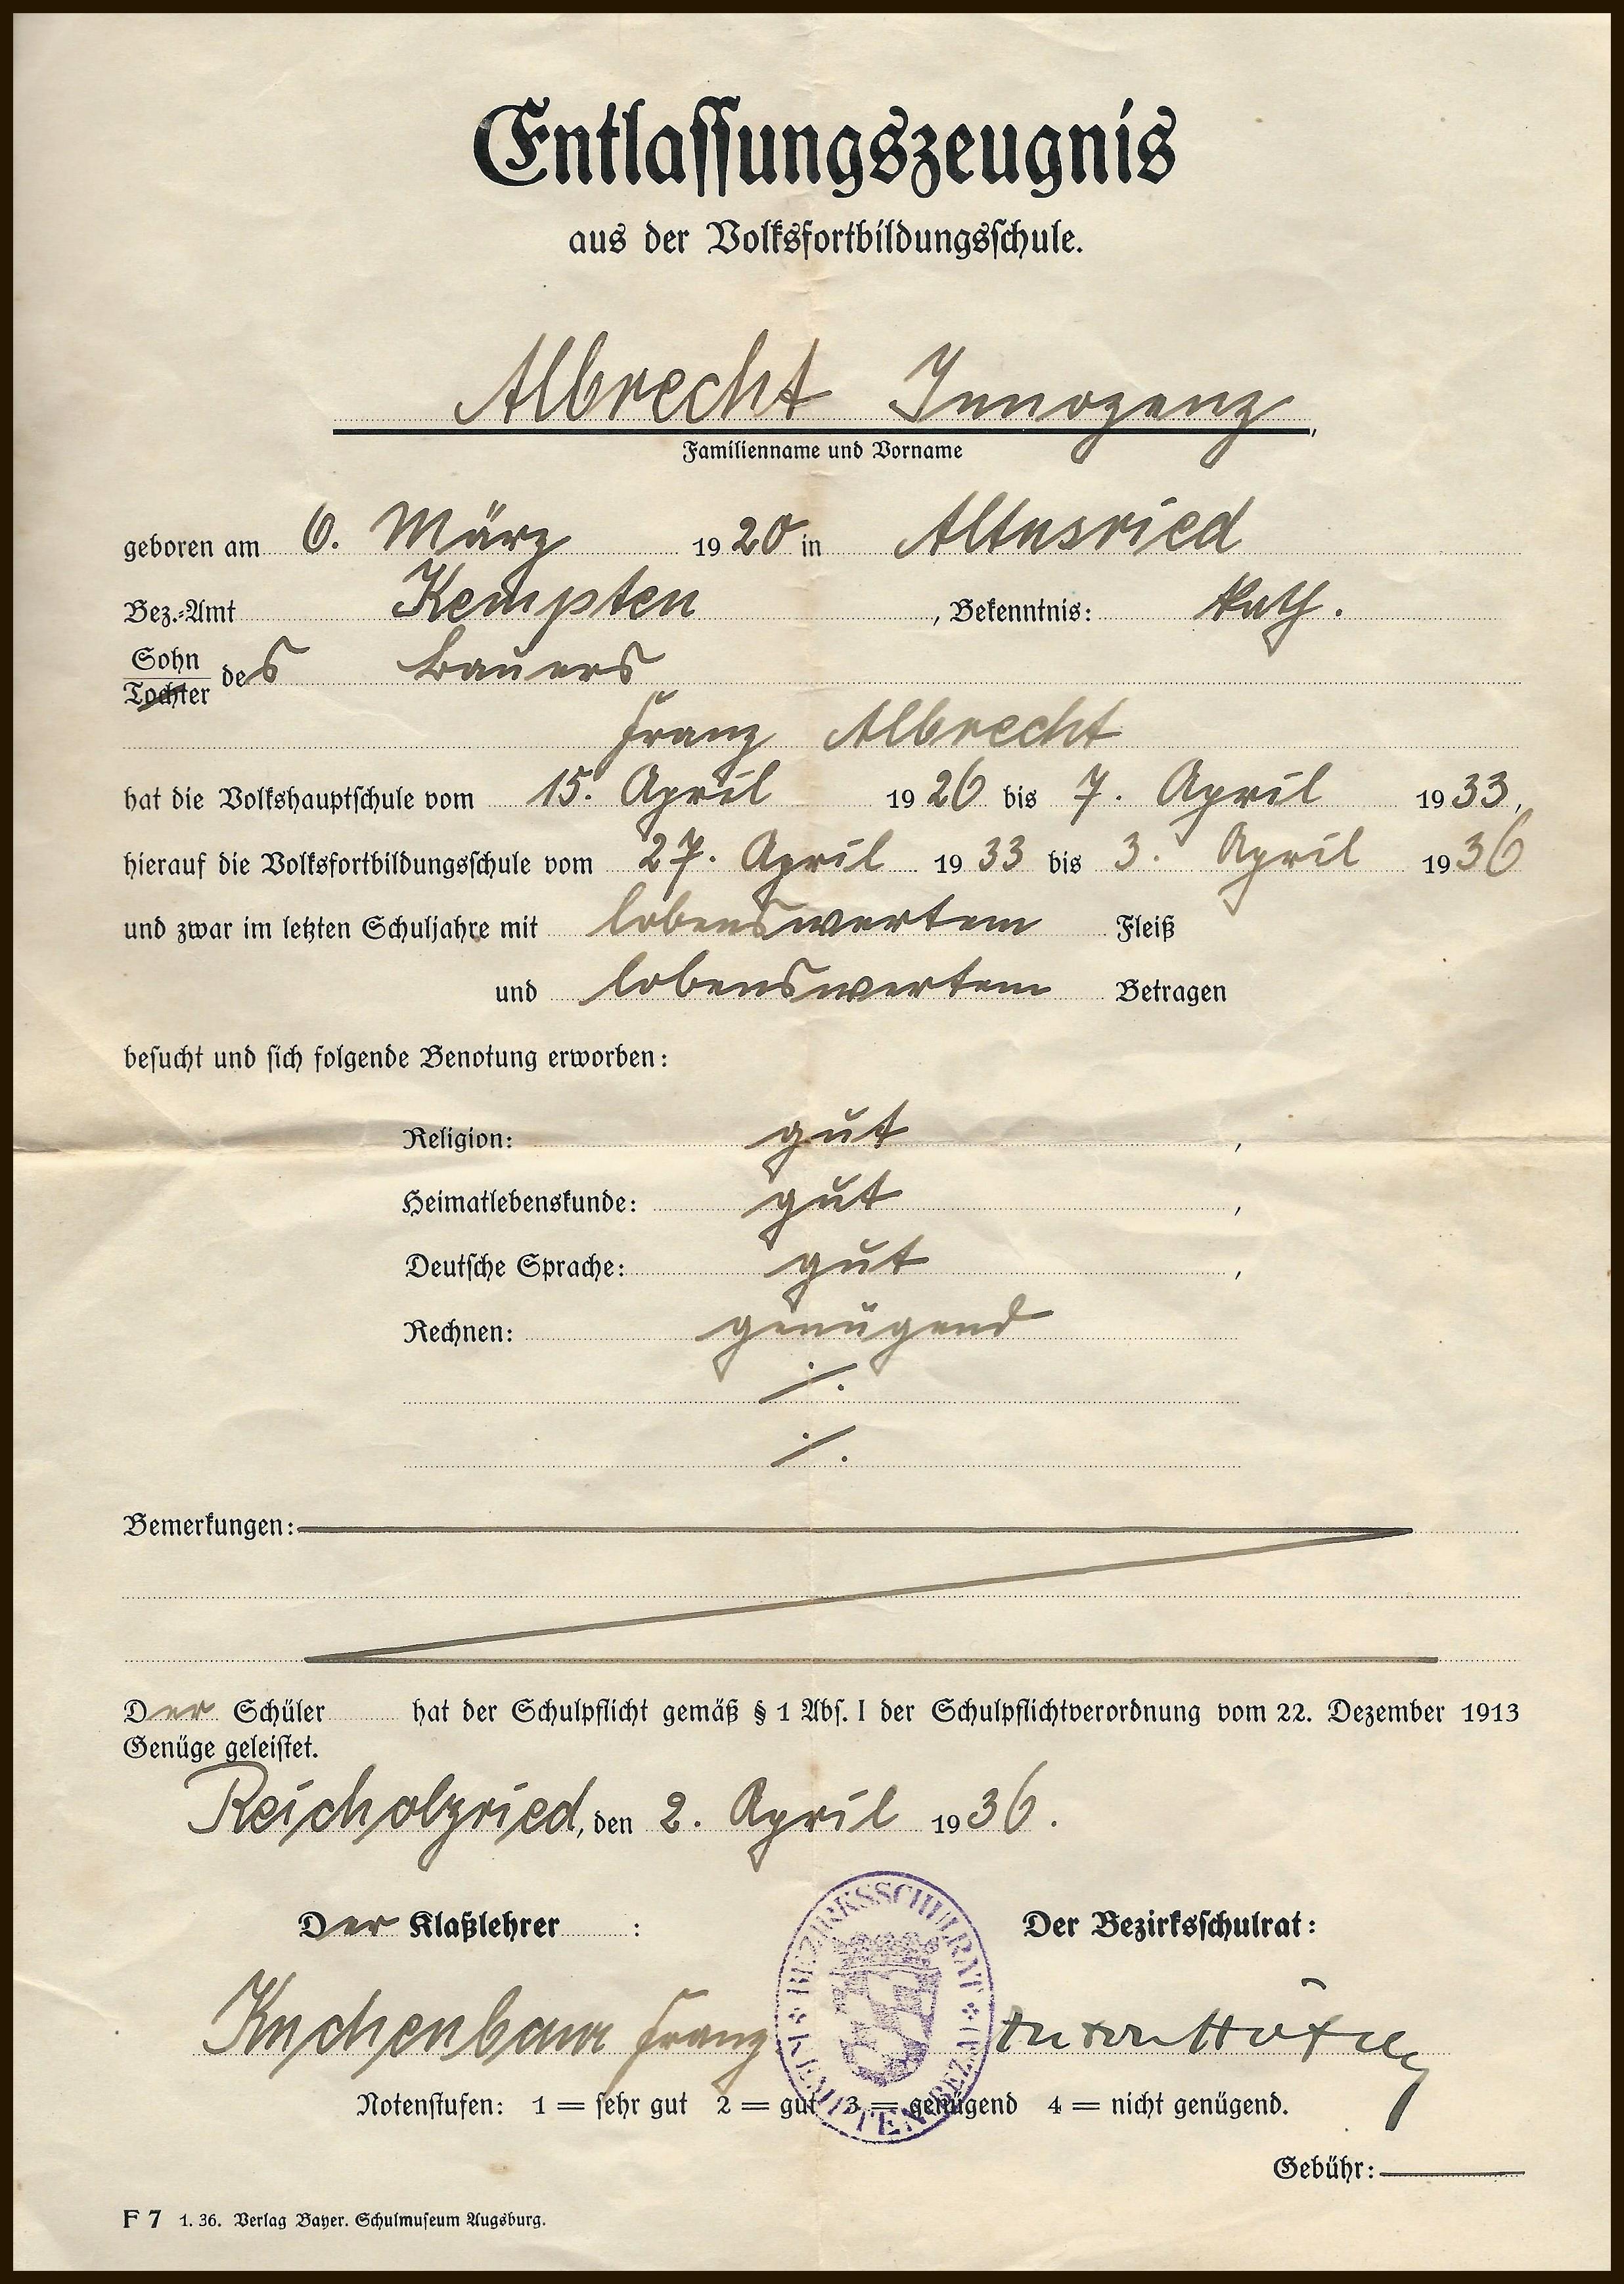 Entlassungszeugnis
aus der Volksfortbildungsschule.
Albrecht Innozenz,
Familienname und Vorname
geboren am 6. März 1920 in Altusried
Bez.-Amt Kempten, Bekenntnis: kath.
Sohn
Tochter des Bauers
Franz Albrecht
hat die Volkshauptschule vom 15. April 1926 bis 7. April 1933,
hierauf die Volksfortbildungsschule vom 27. April 1933 bis 3. April 1936
und zwar im letzten Schuljahre mit lobenswertem Fleiß
und lobenswertem Betragen
besucht und sich folgende Benotung erworben:
Religion: gut,
Heimatlebenskunde: gut,
Deutsche Sprache: gut,
Rechnen: genügend
./.
./.
Bemerkungen:
Der Schüler hat der Schulpflicht gemäß § 1 Abs. I der Schulpflichtverordnung vom 22. Dezember 1913
Genüge geleistet.
Reicholzried, den 2. April 1936.
Der Klaßlehrer:
Der Bezirksschulrat:
Kuchenbaur Franz
BEZIRKSSCHULRAT KEMPTEN BEZA
Anton
Notenstufen: 1 = sehr gut 2 = gut 3 = genügend 4 = nicht genügend.
Gebühr:
F 7 1. 36. Verlag Bayer. Schulmuseum Augsburg.